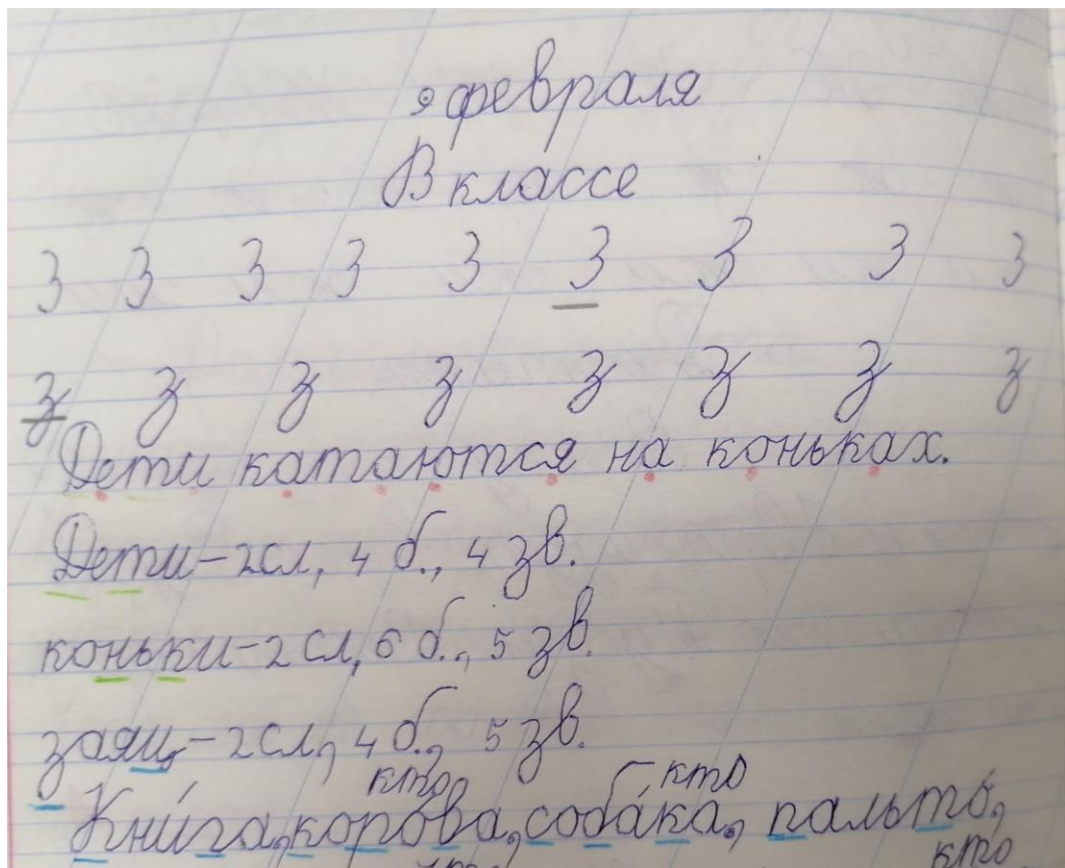 9 февраля
В классе
З З З З З З З З З
з з з з з з з з
Дети катаются на коньках.
Дети-2сл, 4 б., 4 зв.
коньки-2 сл, 6 б., 5 зв.
заяц-2сл, 4 б., 5 зв.
кто кто
Книга, корова, собака, пальто,
кто